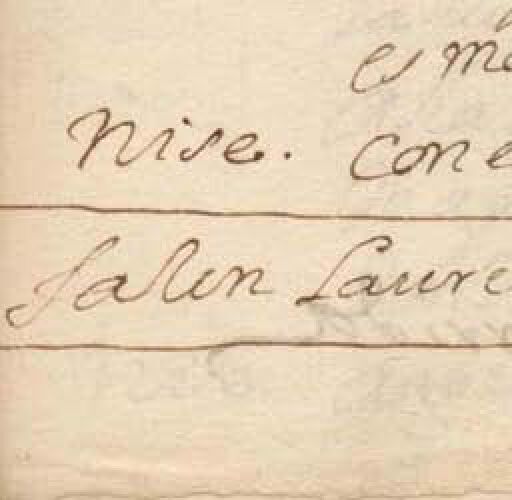 es mo
Nise. Con e
Salen Laure